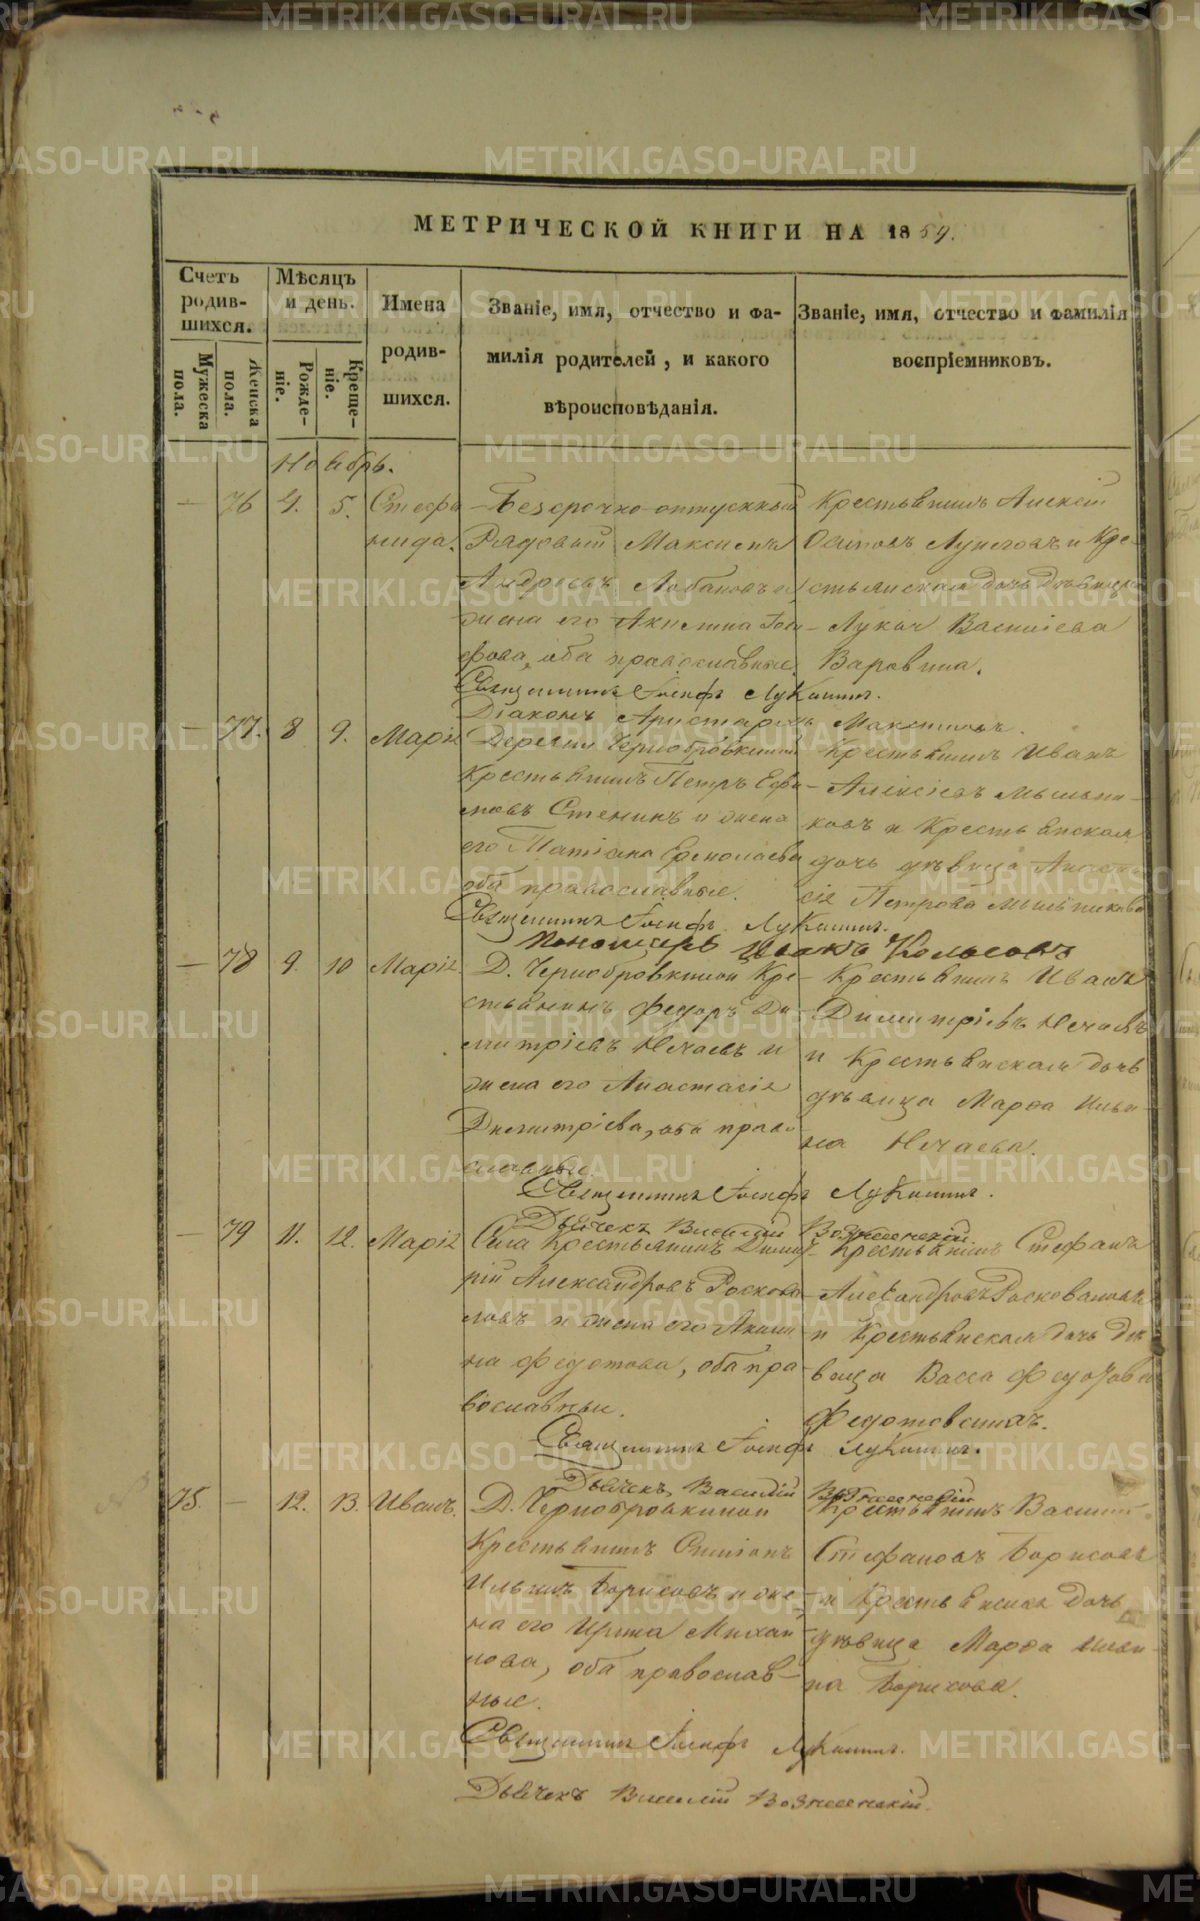 МЕТРИЧЕСКОЙ КНИГИ НА 1859.
Счетъ родив-шихся.
Мужеска пола.
Женска пола.
Мѣсяцъ и день.
Рожде-ніе.
Креще-ніе.
Имена
родив-
шихся.
Званіе, имя, отчество и фа-
милія родителей, и какого
вѣроисповѣданія.
Званіе, имя, отчество и фамилія
воспріемниковъ.
Ноябрь.
— 76 4. 5. Стефа
нида.
Безсрочно-отпускный
Рядовый Максимъ
Андреевъ Лобановъ и
жена его Акилина Іоси
фова, оба православные.
Крестьянинъ Алексій
Осиповъ Лунеговъ и Кре-
стьянская дочь Дѣвица
Лукія Василіева
Варовина.
Священникъ Іосифъ Луканинъ.
Діаконъ Аристархъ Максимовъ.
— 77. 8 9. Марія
Деревни Чернобровкиной
Крестьянинъ Петръ Ефи-
мовъ Стенинъ и жена
его Татіана Ермолаева
оба православные.
Крестьянинъ Иванъ
Алексіевъ Мыльни-
ковъ и Крестьянская
дочь дѣвица Анаста-
сія Петрова Мыльникова
Священникъ Іосифъ Луканинъ.
Пономарь Иванъ Колосовъ
— 78 9. 10 Марія.
Д. Чернобровкиной Кре-
стьянинъ Федоръ Ди-
митріевъ Нечаевъ и
жена его Анастасія
Димитріева, оба право
славные.
Крестьянинъ Иванъ
Димитріевъ Нечаевъ
и Крестьянская дочь
дѣвица Марѳа Ильи-
на Нечаева.
Священникъ Іосифъ Луканинъ.
Дьячекъ Василій Вознесенскій.
— 79 11. 12. Марія
Села Крестьянинъ Димит-
рій Александровъ Росково
ловъ и жена его Акили
на Федотова, оба пра
вославные.
Крестьянинъ Стефанъ
Александровъ
и Крестьянская дочь дѣ
вица Васса Федотова
Федотовскихъ.
Священникъ Іосифъ Луканинъ.
Дьячекъ Василій Вознесенскій
75. — 12. 13. Иванъ.
Д. Чернобровкиной
Крестьянинъ Симіонъ
Ильинъ Борисовъ и же-
на его Ирина Михаи
лова, оба православ-
ные.
Крестьянинъ Василій
Стефановъ Борисовъ
и Крестьянская Дочь
дѣвица Марѳа Ильи-
на Борисова.
Священникъ Іосифъ Луканинъ.
Дьячекъ Василій Вознесенскій.
METRIKI.GASO-URAL.RU